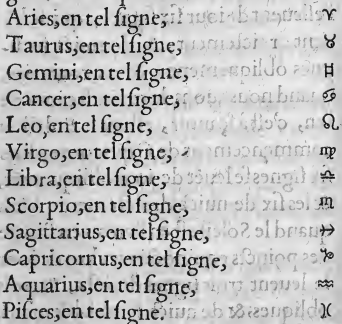 Aries,en tel ſigne, ♈
Taurus,en tel ſigne, ♉
Gemini,en tel ſigne, ♊
Cancer,en tel ſigne, ♋
Leo,en tel ſigne, ♌
Virgo,en tel ſigne, ♍
Libra,en tel ſigne, ♎
Scorpio,en tel ſigne, ♏
Sagittarius,en tel ſigne, ♐
Capricornus,en tel ſigne, ♑
Aquarius,en tel ſigne, ♒
Piſces,en tel ſigne. ♓